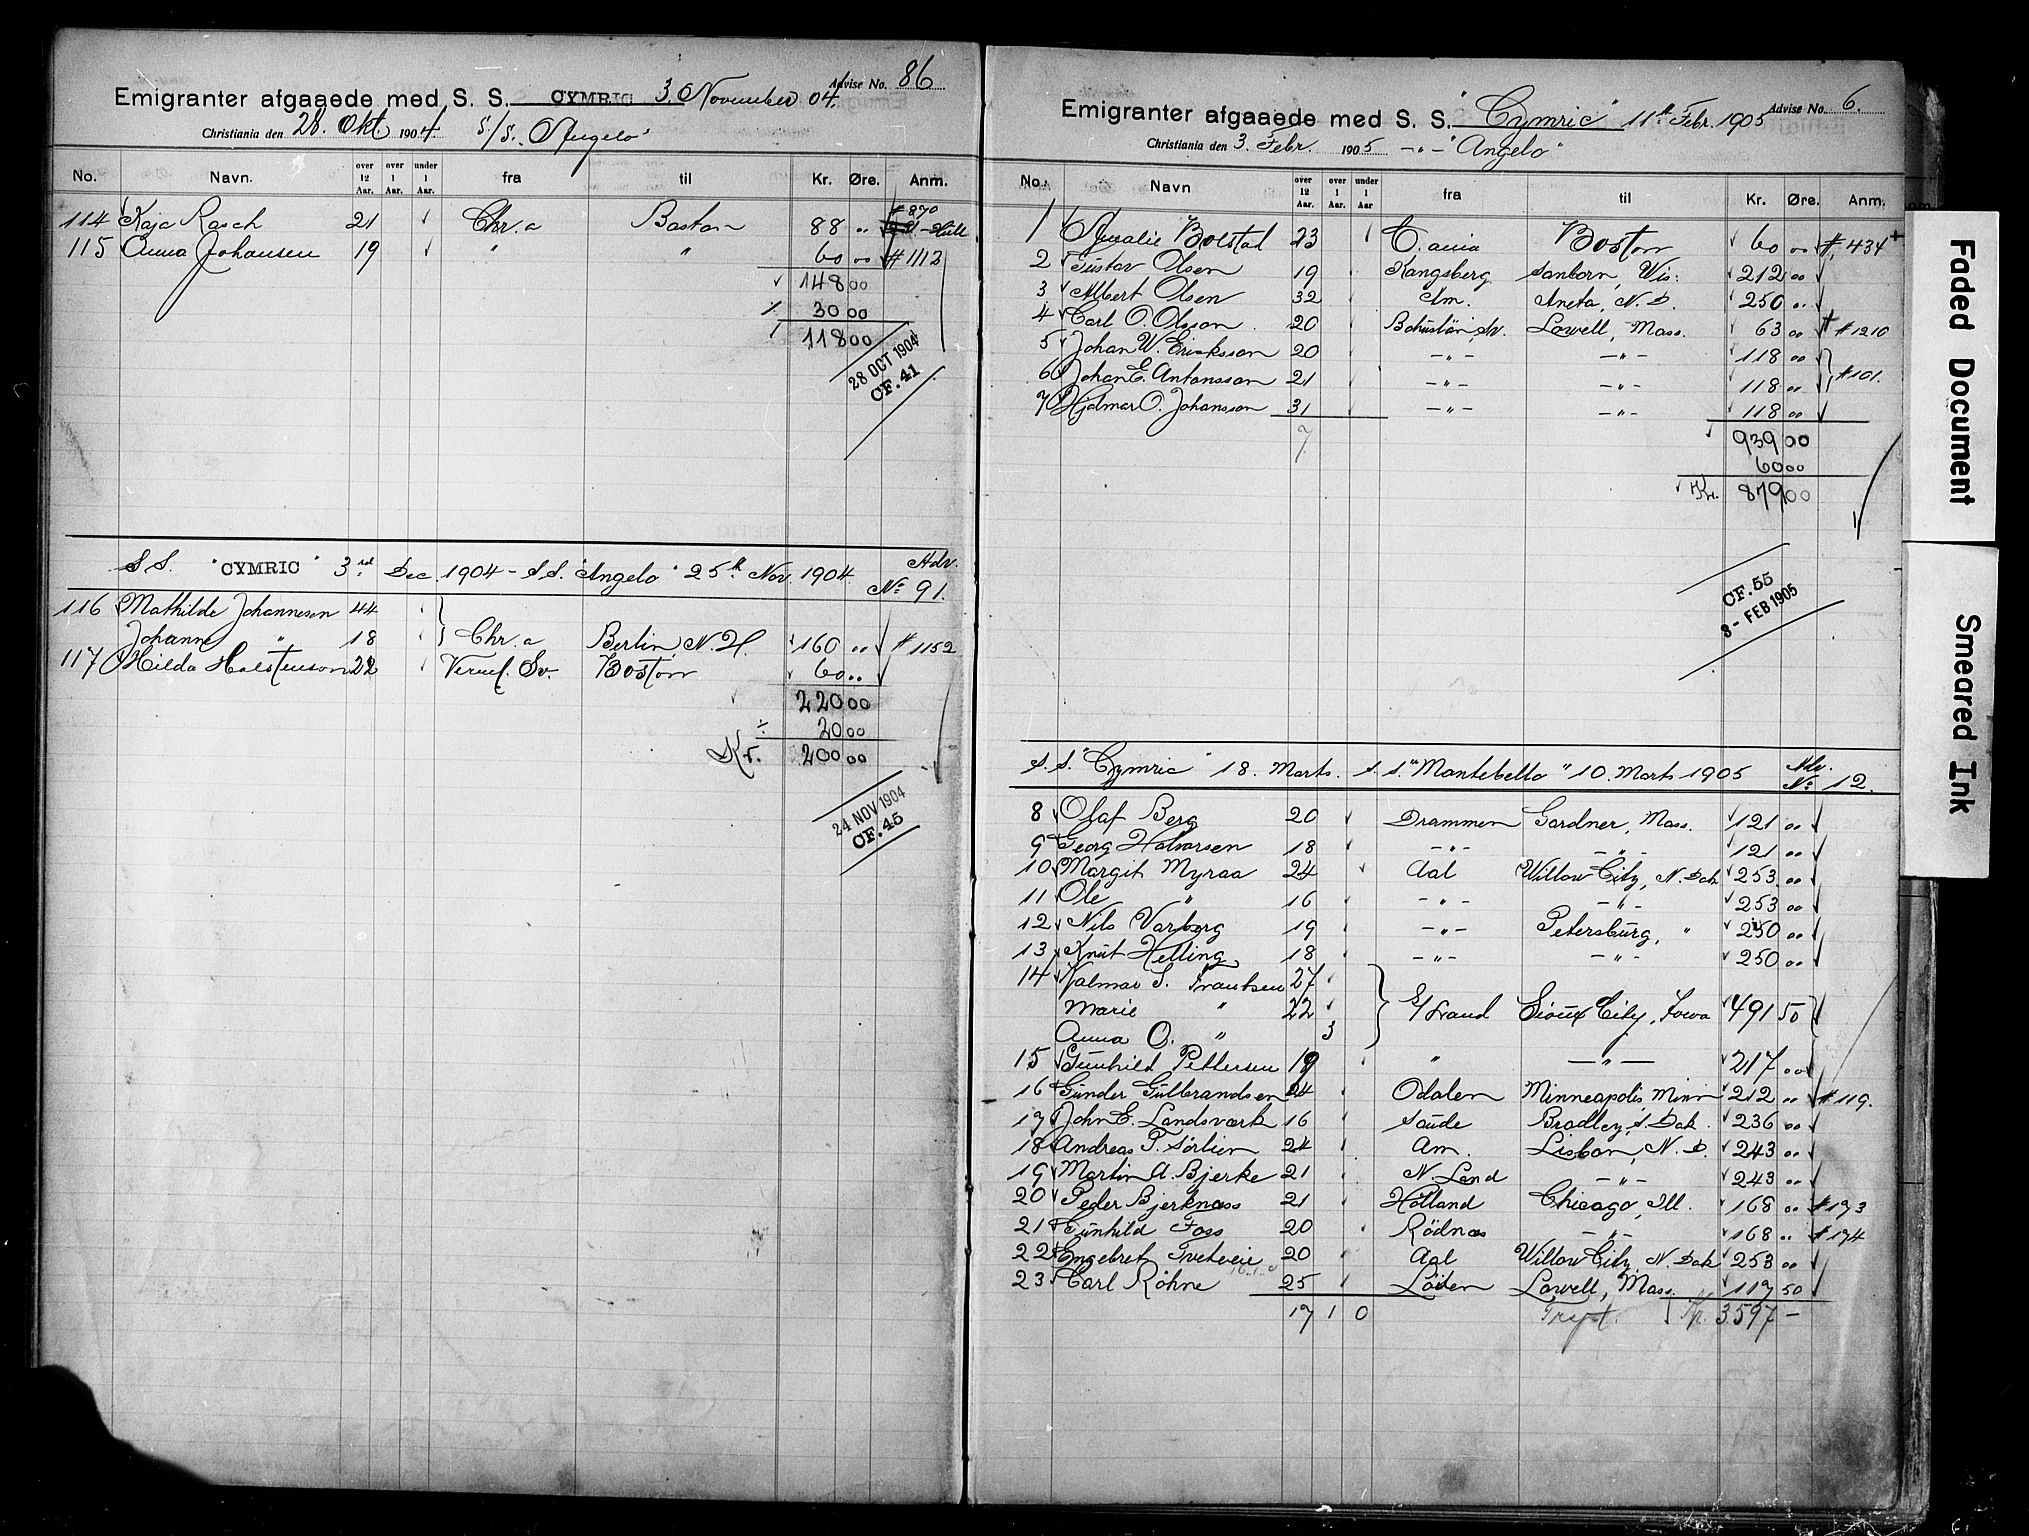 Advise No. 86
Emigranter afgaaede med S. S. CYMRIC 3. November 04.
Christiania den 28. Okt. 1904. S/S. "Angelo"
No. Navn. over 12 Aar. over 1 Aar. under 1 Aar. fra til Kr. Øre. Anm.
114 Kaja Rasch 21 Chr.a Boston 88 " #870
115 Anna Johansen 19 " " 60 00 #1112
148 00
30 00
118 00
28 OCT 1904
CF. 41
S.S. "CYMRIC" 3rd Dec. 1904 - S.S. "Angelo" 25th Nov. 1904. Adv. No 91.
116 Mathilde Johannesen 44
Johanne " 18 Chr.a Berlin, N.H. 160 " #1152
117 Hilda Holstenson 22 Verml. Sv. Boston 60 "
220 00
÷ 20 00
Kr. 200 00
24 NOV 1904
CF. 45
Advise No. 6.
Emigranter afgaaede med S. S. "Cymric" 11th Febr. 1905
Christiania den 3. Febr. 1905 -"- "Angelo"
No. Navn over 12 Aar. over 1 Aar. under 1 Aar fra til Kr. Øre. Anm.
1 Amalie Bolstad 23 C.ania Boston 60 00 #434
2 Gustav Olsen 19 Kongsberg Sanborn, Wis. 212 00
3 Albert Olsen 32 Am. Aneta, N.D. 250 "
4 Carl O. Olsson 20 Bohuslän, Sv. Lowell, Mass. 63 00 #1210
5 Johan W. Ericksson 20 -"- -"- 118 00
6 Johan E. Antonsson 21 -"- -"- 118 " #101.
7 Hjalmar O. Johansson 31 -"- -"- 118 00
7
939 00
60 00
Kr. 879 00
CF. 55
8 - FEB 1905
S.S. "Cymric" 18. Marts. S.S. "Montebello" 10. Marts 1905 Adv. No 12.
8 Olaf Berg 20 Drammen Gardner, Mass. 121 00
9 Georg Halvorsen 18 -"- -"- 121 00
10 Margit Myraa 24 Aal Willow City, N. Dak 253 00
11 Ole " 16 -"- -"- 253 00
12 Nils Varberg 19 -"- Petersburg, " 250 00
13 Knut Helling 18 -"- -"- 250 00
14 Hjalmar S. Frantsen 27
Marie " 22 Strand Sioux City, Iowa 491 50
Anna O. " 3
15 Gunhild Pettersen 19 " -"- 217 00
16 Gunder Gulbrandsen 24 Odalen Minneapolis Minn 212 " #119.
17 John E. Landsverk 16 Saude Bradley, S. Dak. 236 00
18 Andreas T. Sörlien 24 Am. Lisbon, N.D. 243 00
19 Martin A. Bjerke 21 N. Land -"- 243 00
20 Peder Bjerknæss 21 Hölland Chicago, Ill. 168 00 #173
21 Gunhild Foss 20 Rödnæs -"- 168 " #174
22 Engebret Tveteraas 20 Aal Willow City, N. Dak 253 00
23 Carl Röhne 25 Löiten Lowell, Mass. 117 50
17 1 0 Kr. 3597 -
Faded Document
Smeared Ink